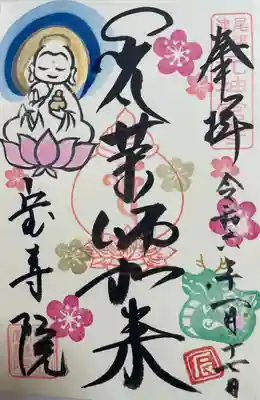 奉拝
令和六年一月十七日
薬師如来
宝寿院
辰